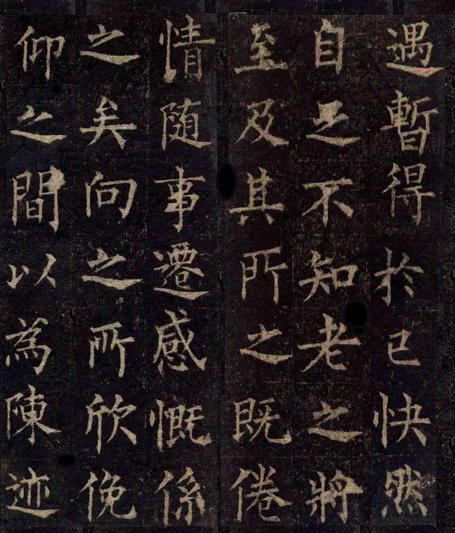 遇暫得於己快然
自足不知老之將
至及其所之既倦
情隨事遷感慨係
之矣向之所欣俛
仰之間以為陳迹